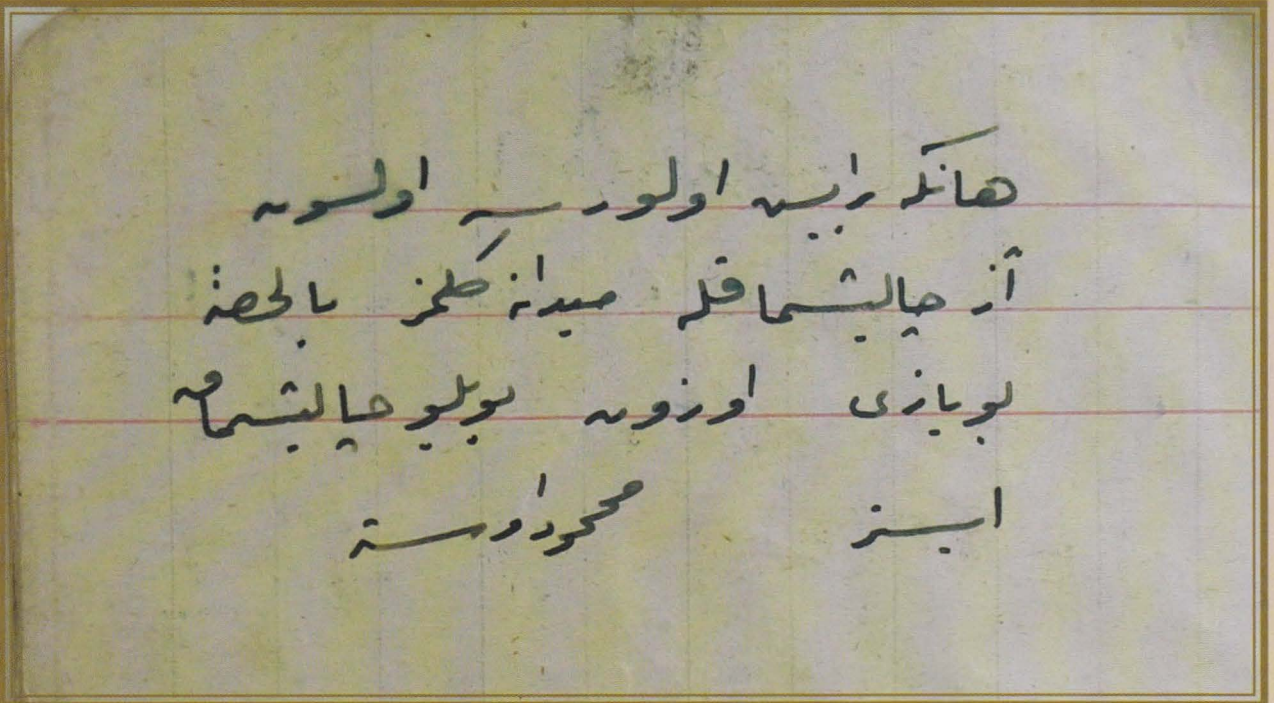 هانكه بر ايش اولورسه اولسون
آز چاليشماقله ميدانه كلمز بالخاصه
بو يازى اوزون بويلو چاليشماق
ايستر محمود اوسته